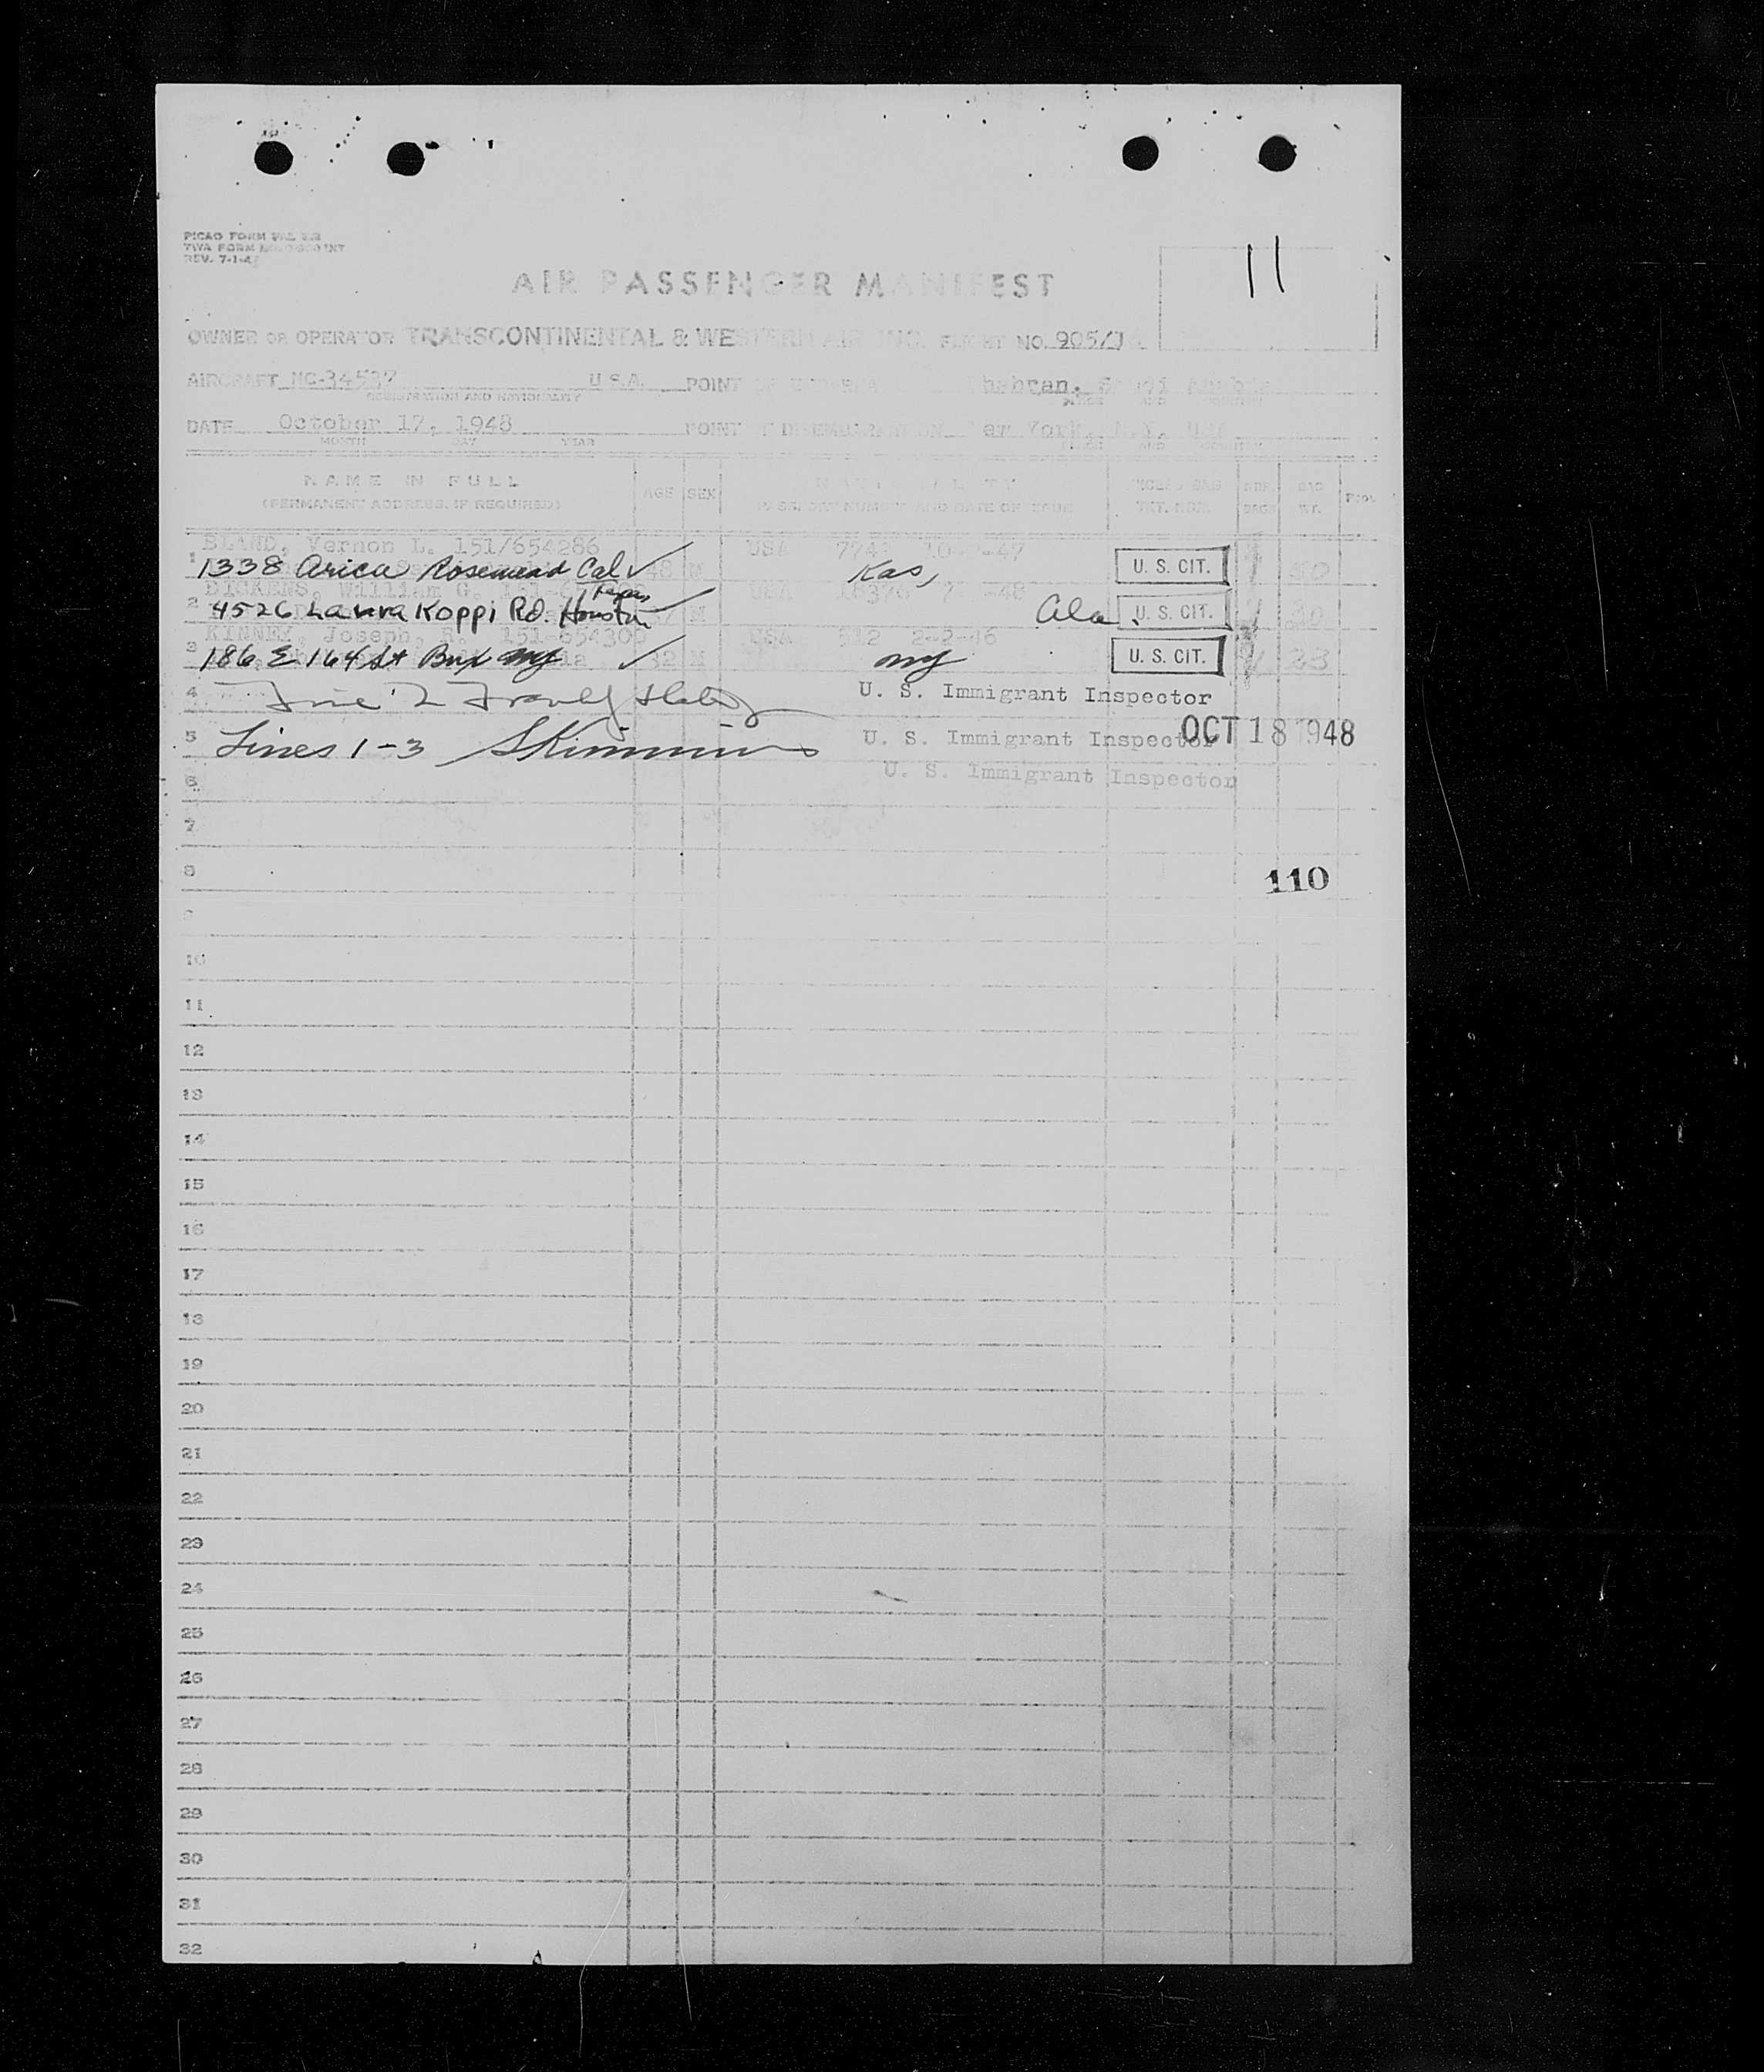 PICAO FORM
TWA FORM
REV. 7-1-4
11
AIR PASSENGER MANIFEST
OWNER OR OPERATOR TRANSCONTINENTAL & WESTERN AIR INC. FLIGHT NO. 905/J
AIRCRAFT NC-34537 U.S.A. POINT Dhahran, Saudi Arabia
REGISTRATION AND NATIONALITY PLACE AND COUNTRY
DATE October 17, 1948 POINT OF DISEMBARKATION New York, N.Y. USA
MONTH DAY YEAR PLACE AND COUNTRY
NAME IN FULL AGE SEX
(PERMANENT ADDRESS, IF REQUIRED) PASSPORT NUMBER AND DATE OF ISSUE
BLAND, Vernon L. 151/654286 USA
1 1338 Arica Rosemead Cal ✓ 48 M Kas, U. S. CIT.
DICKENS, William G. USA
Texas
2 4526 Laura Koppi Rd. Houston M Ala. U. S. CIT.
KINNEY, Joseph, R. 151-654300 USA 512 2-2-46
3 186 E 164 St Bnx NY ✓ 32 M NY U. S. CIT. 23
4 U. S. Immigrant Inspector
5 Lines 1-3 U. S. Immigrant Inspector OCT 18 1948
6 U. S. Immigrant Inspector
7
8 110
9
10
11
12
13
14
15
16
17
18
19
20
21
22
23
24
25
26
27
28
29
30
31
32